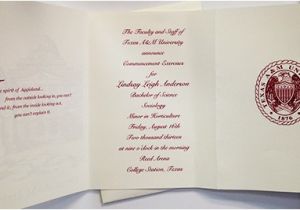 spirit of Aggieland...
from the outside looking in, you can't
and it, from the inside looking out,
you can't explain it.
The Faculty and Staff of
Texas A&M University
announce
Commencement Exercises
for
Lindsay Leigh Anderson
Bachelor of Science
Sociology
Minor in Horticulture
Friday, August 16th
Two thousand thirteen
nine o'clock in the morning
Reed Arena
College Station, Texas
TEXAS A&M UNIVERSITY
1876